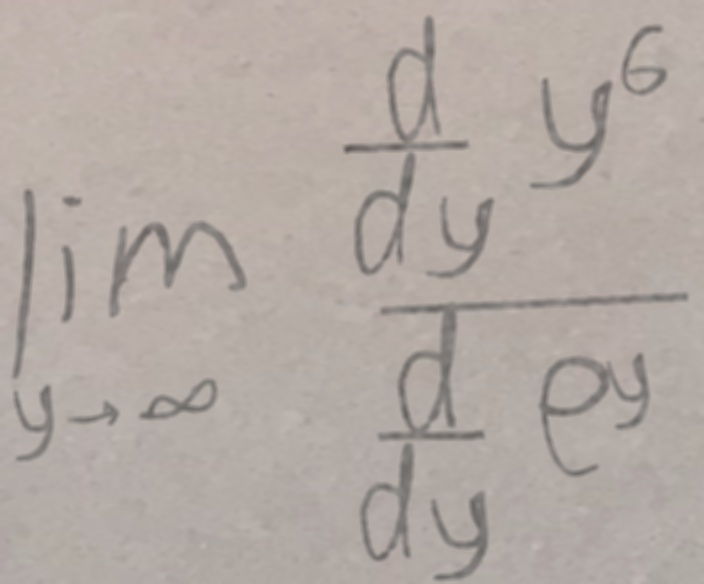 \lim_{y \to \infty} \frac{\frac{d}{dy} y^6}{\frac{d}{dy} e^y}